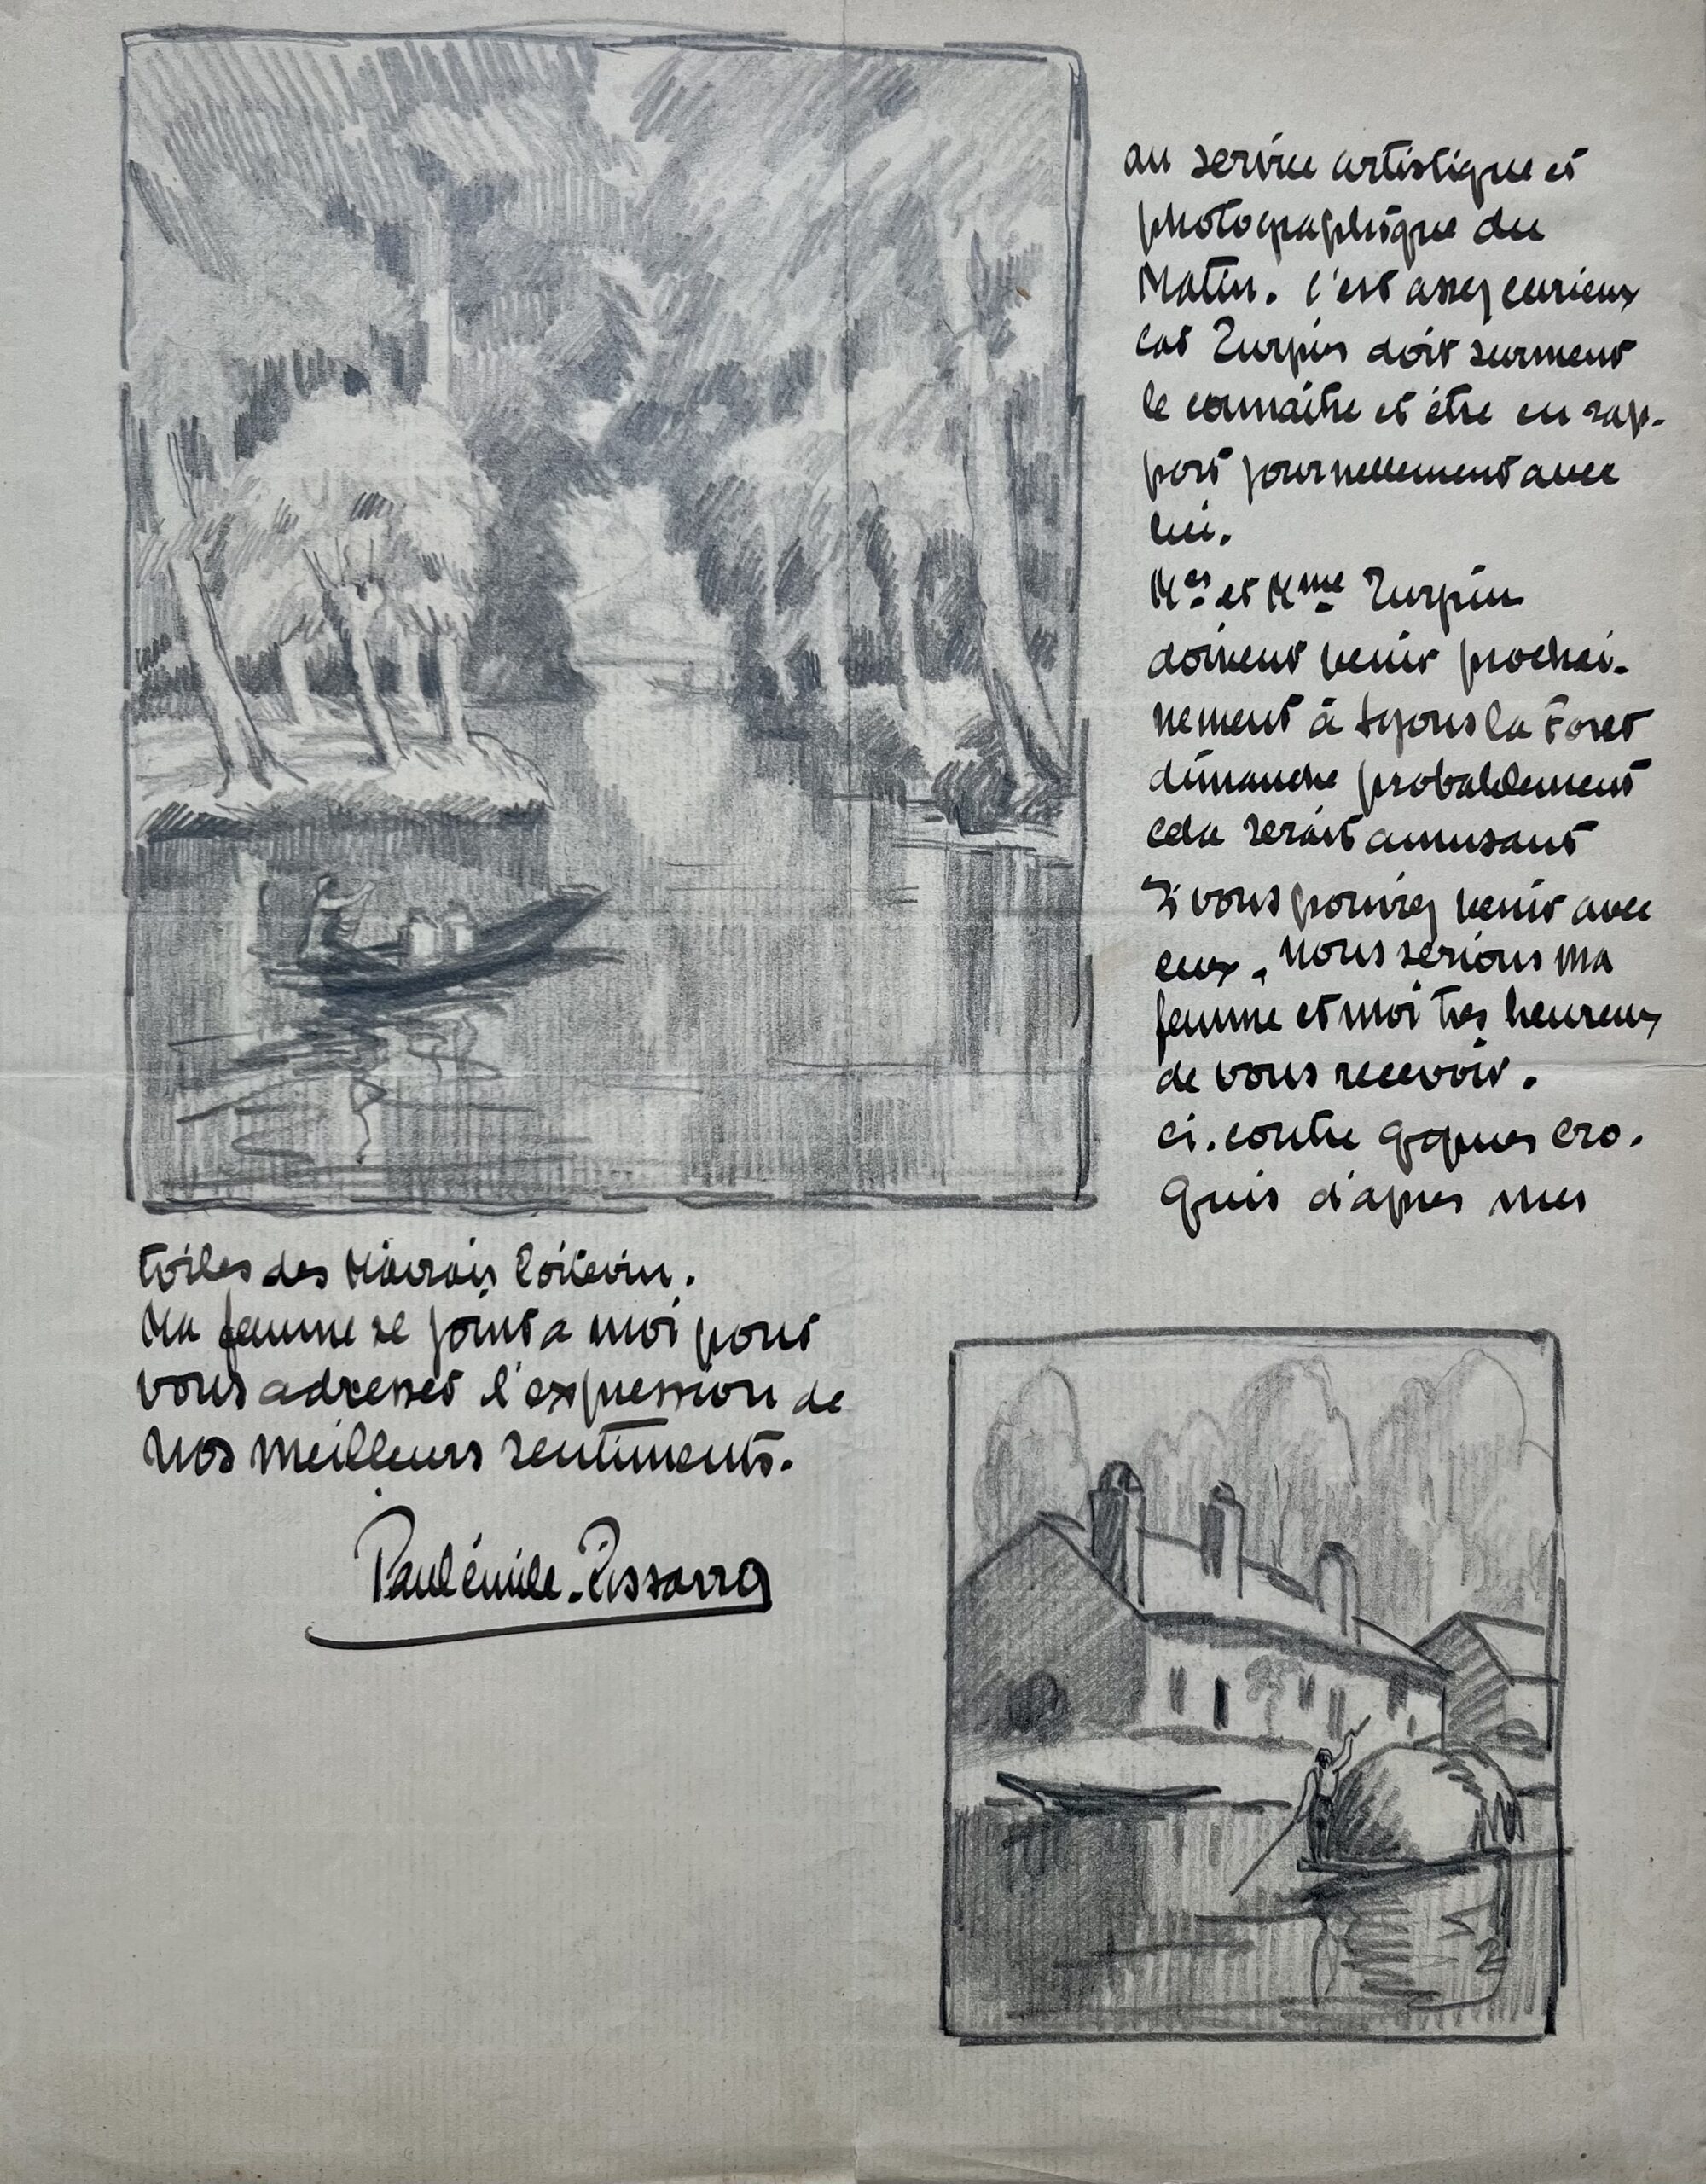 au service artistique et
photographique du
Matin. C'est assez curieux
car Turpin doit surment
le connaitre et être en rap-
port journellement avec
lui.
Mr et Mme Turpin
doivent venir prochai-
nement à Lyons la Foret
dimanche probablement
cela serait amusant
Si vous pouviez venir avec
eux, nous serions ma
femme et moi très heureux
de vous recevoir.
ci-contre qques cro-
quis d'après mes
toiles des Marais Poitevin.
Ma femme se joint a moi pour
vous adresser l'expression de
nos meilleurs sentiments.
Paulémile-Pissarro